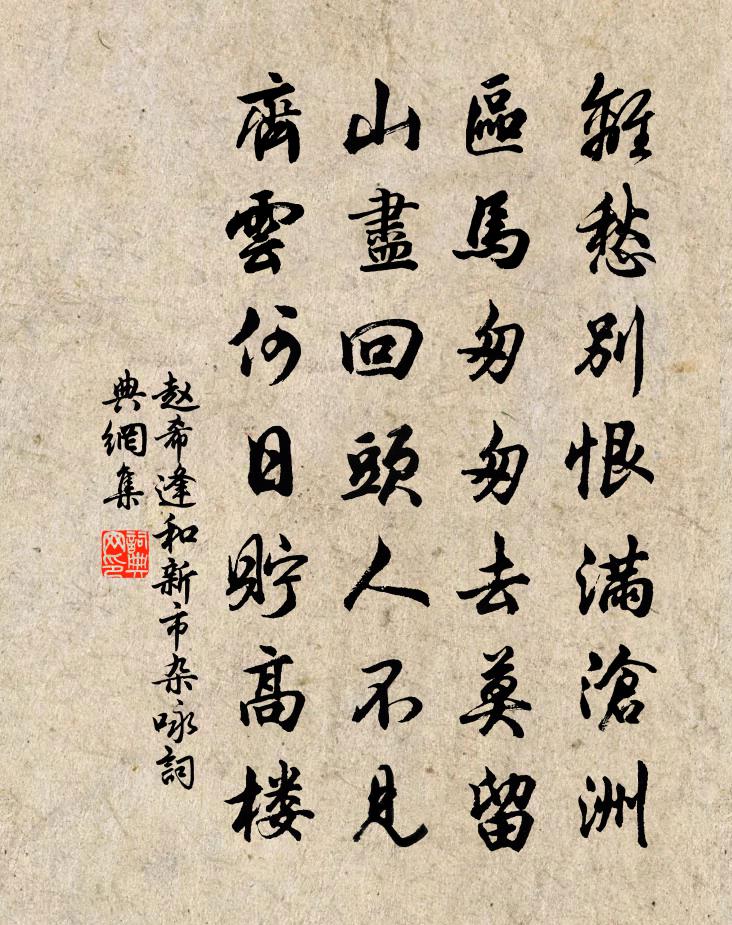 離愁別恨滿滄洲
區馬匆匆去莫留
山盡回頭人不見
齊雲何日貯高楼
赵希逢和新市杂咏詞
典網集
詞典
网印